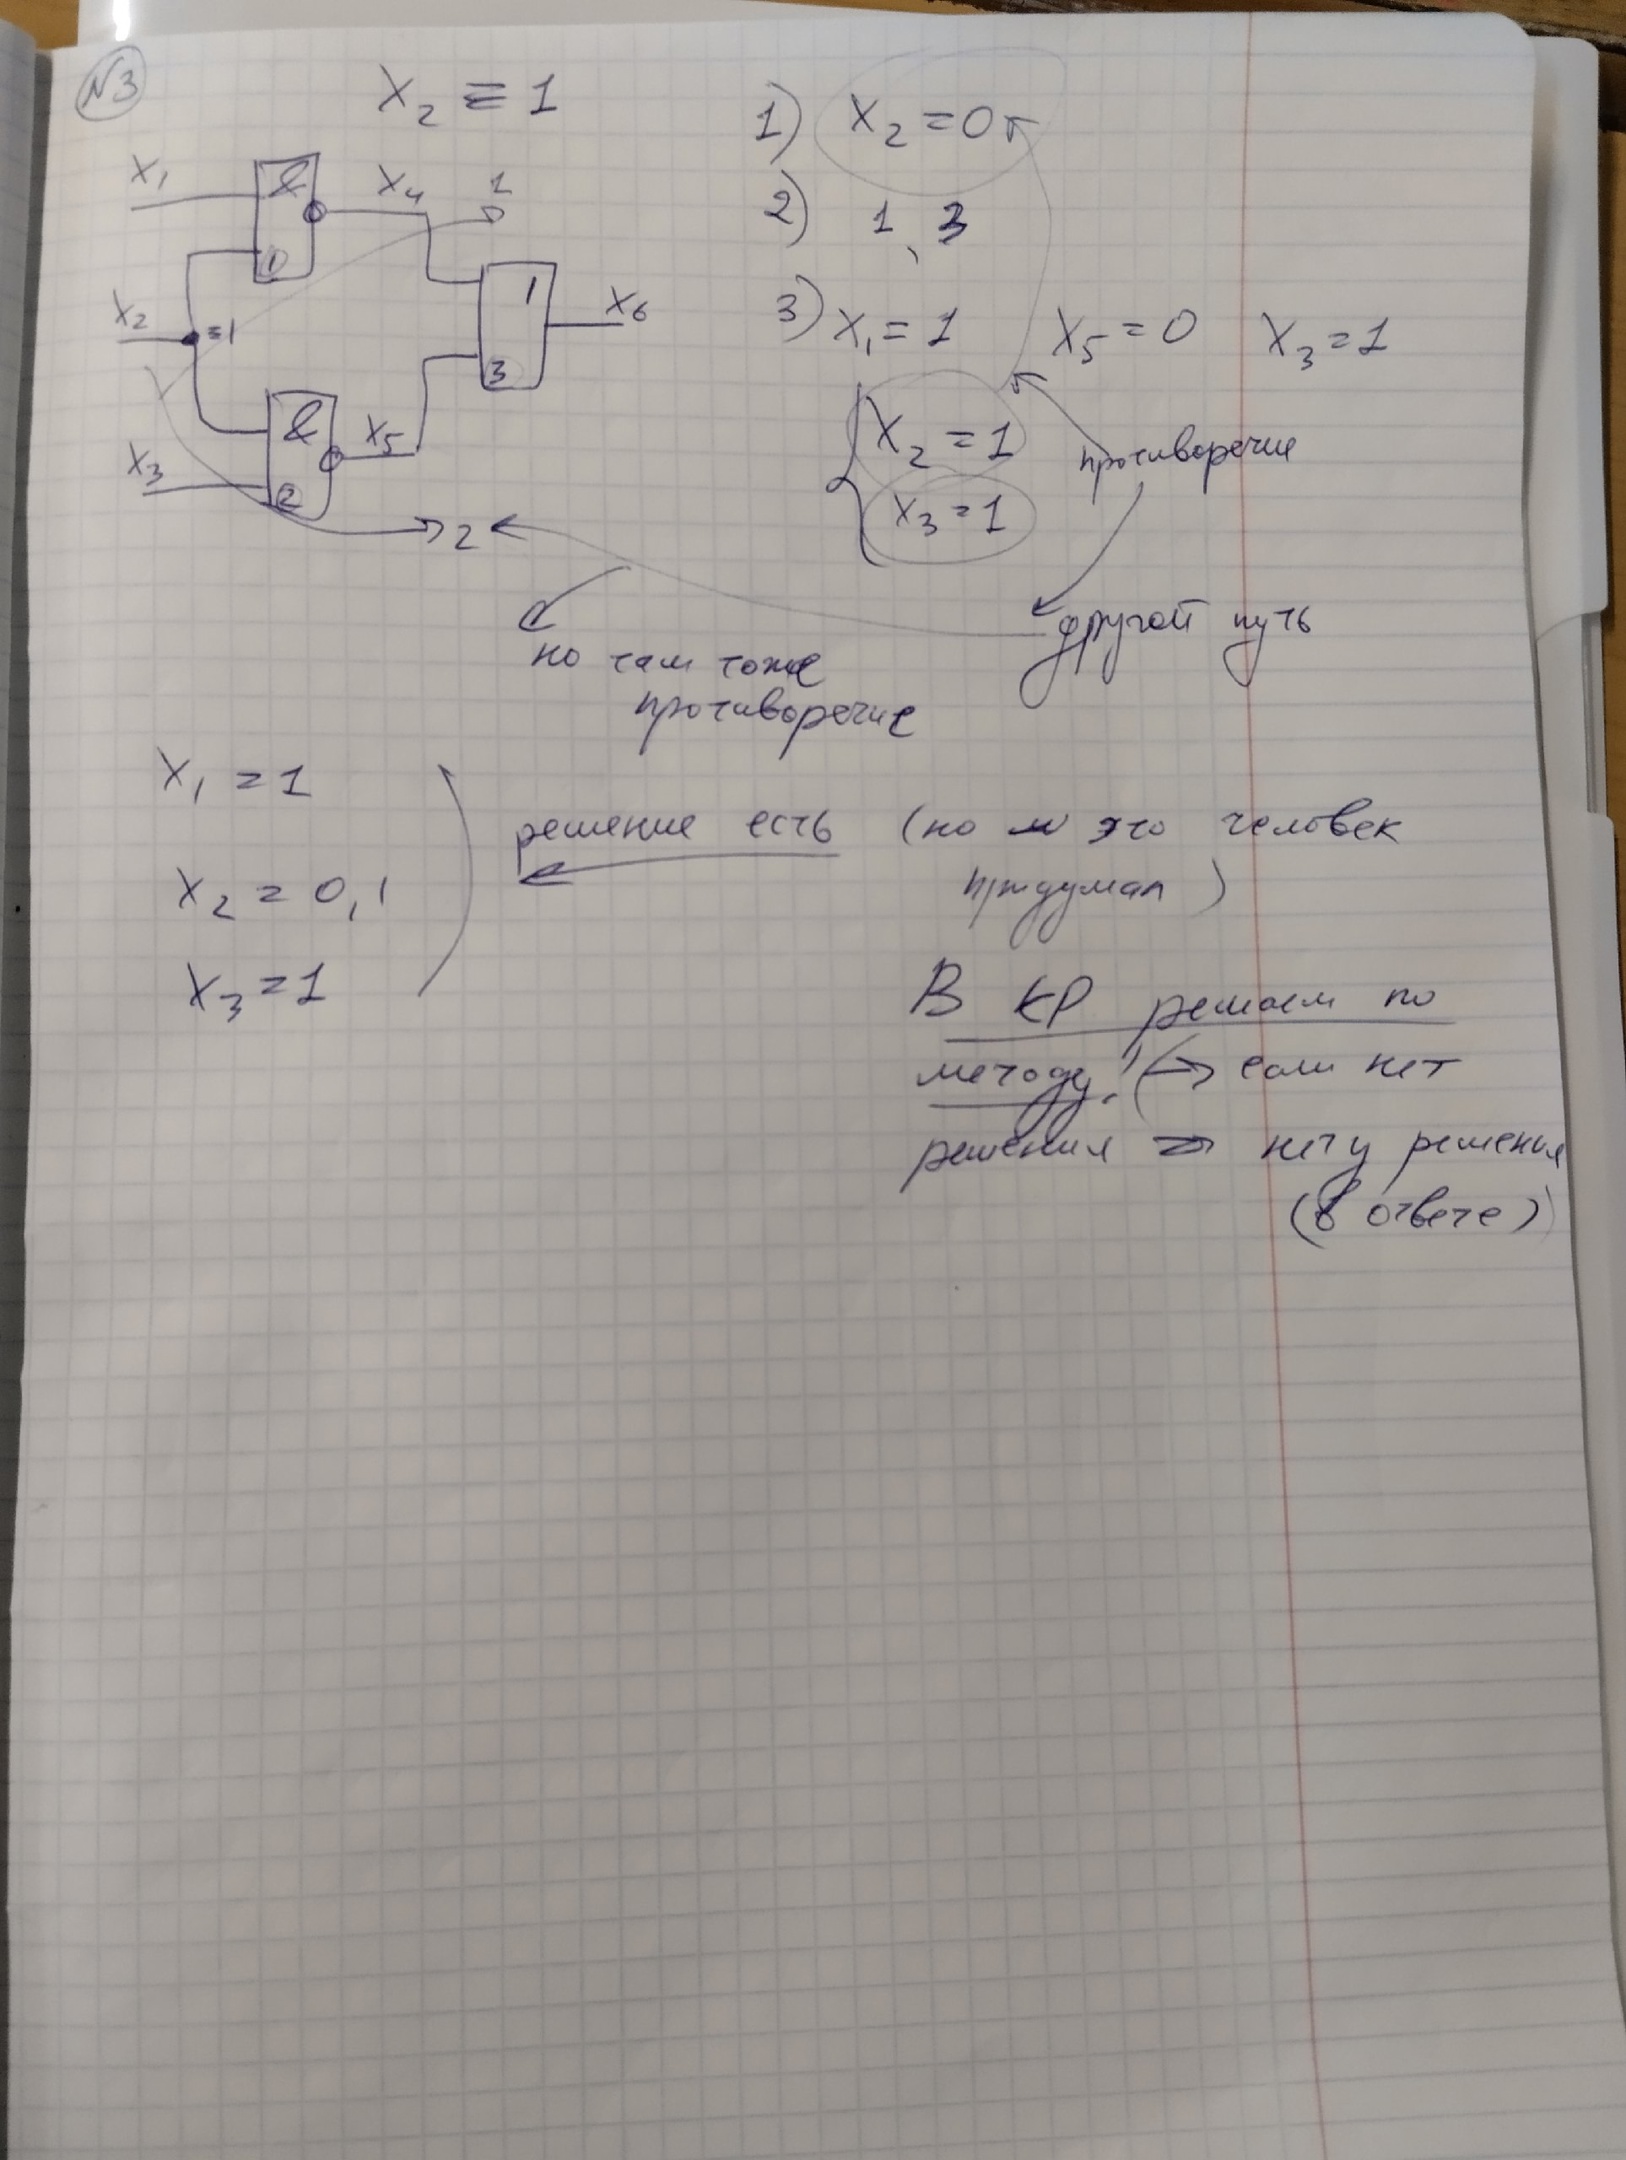 N3
X₂ ≡ 1
X₁
&
1
X₄
1
X₂
≡1
1
3
X₆
X₃
&
2
X₅
2
1) X₂ = 0
2) 1, 3
3) X₁ = 1 X₅ = 0 X₃ = 1
X₂ = 1
X₃ = 1
противоречие
другой путь
но там тоже
противоречие
X₁ = 1
X₂ = 0,1
X₃ = 1
решение есть (но это человек
придумал)
В КР решаем по
методу! (→ если нет
решения ⇒ нету решения
(в ответе)